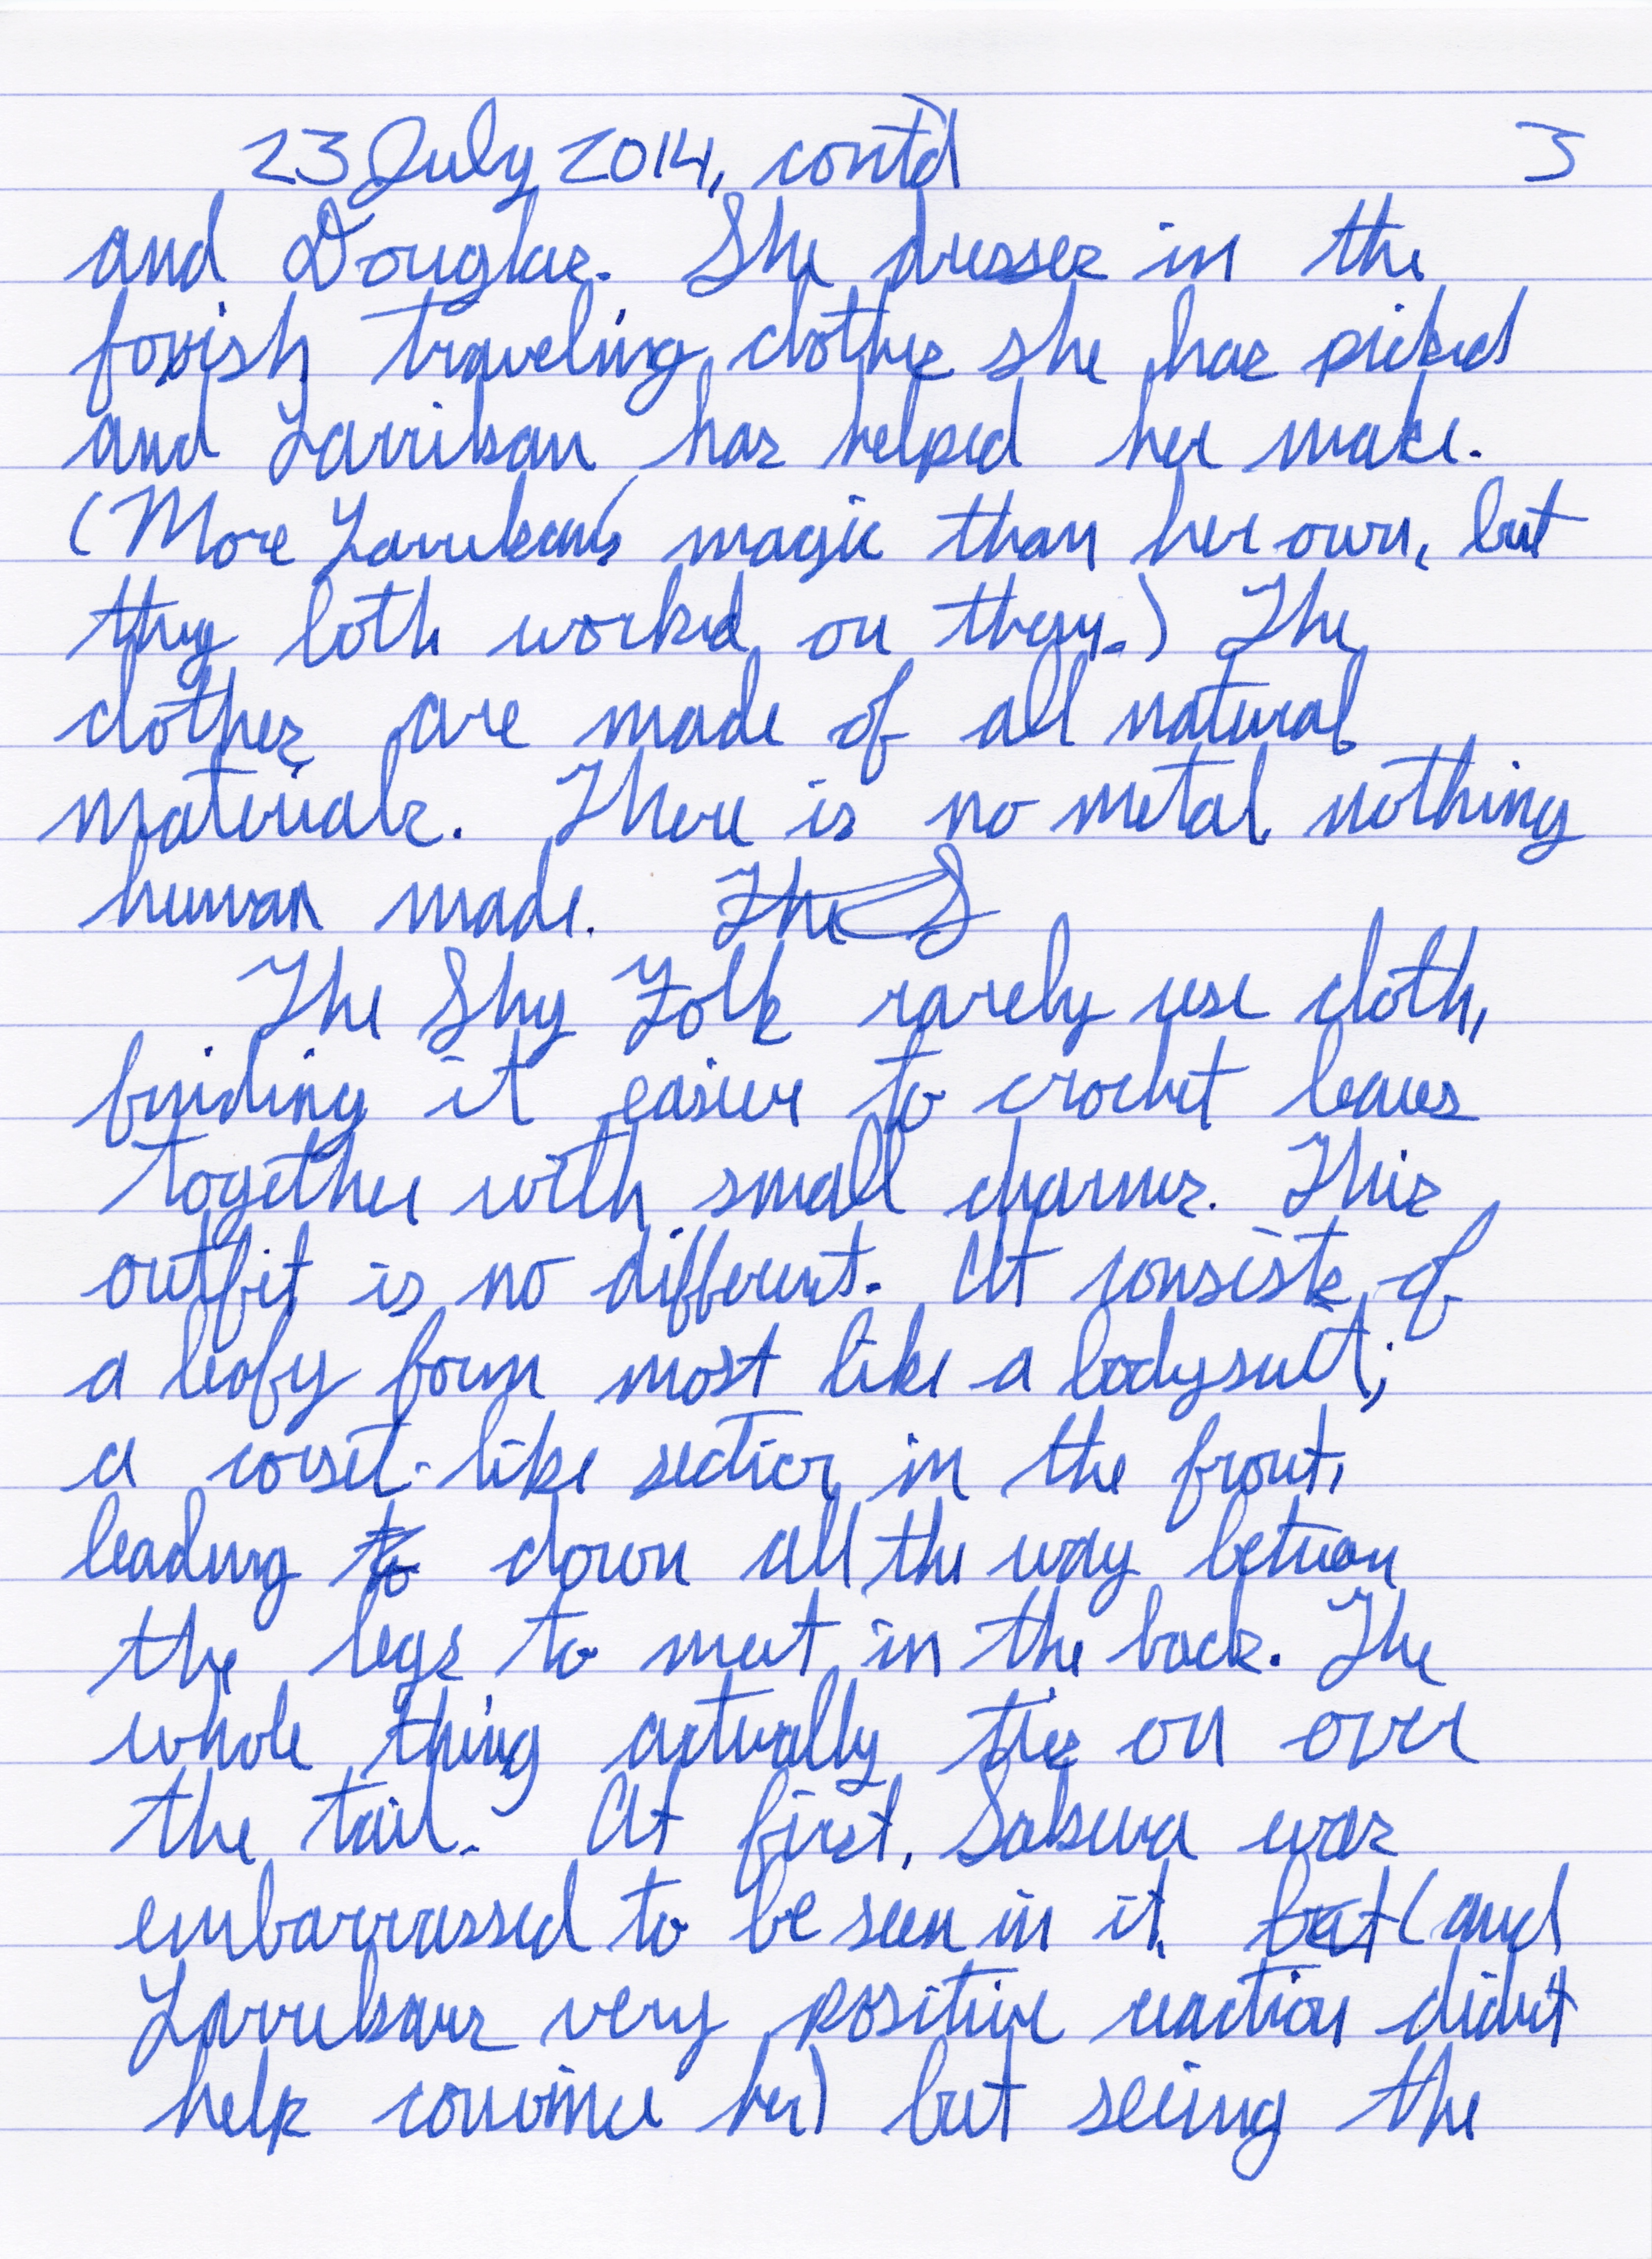 23 July 2014, cont'd 3
and Douglas. She dresses in the
foxish traveling clothes she has picked
and Larrikan has helped her make.
(More Larrikan's magic than her own, but
they both worked on them.) The
clothes are made of all natural
materials. There is no metal, nothing
human made. The S
The Shy Folk rarely use cloth,
finding it easier to crochet leaves
together with small charms. This
outfit is no different. It consists of
a leafy form most like a bodysuit;
a corset-like section in the front,
leading to down all the way between
the legs to meet in the back. The
whole thing actually ties on over
the tail. At first, Sakura was
embarrassed to be seen in it, but (and
Larrikan's very positive reaction didn't
help convince her) but seeing the